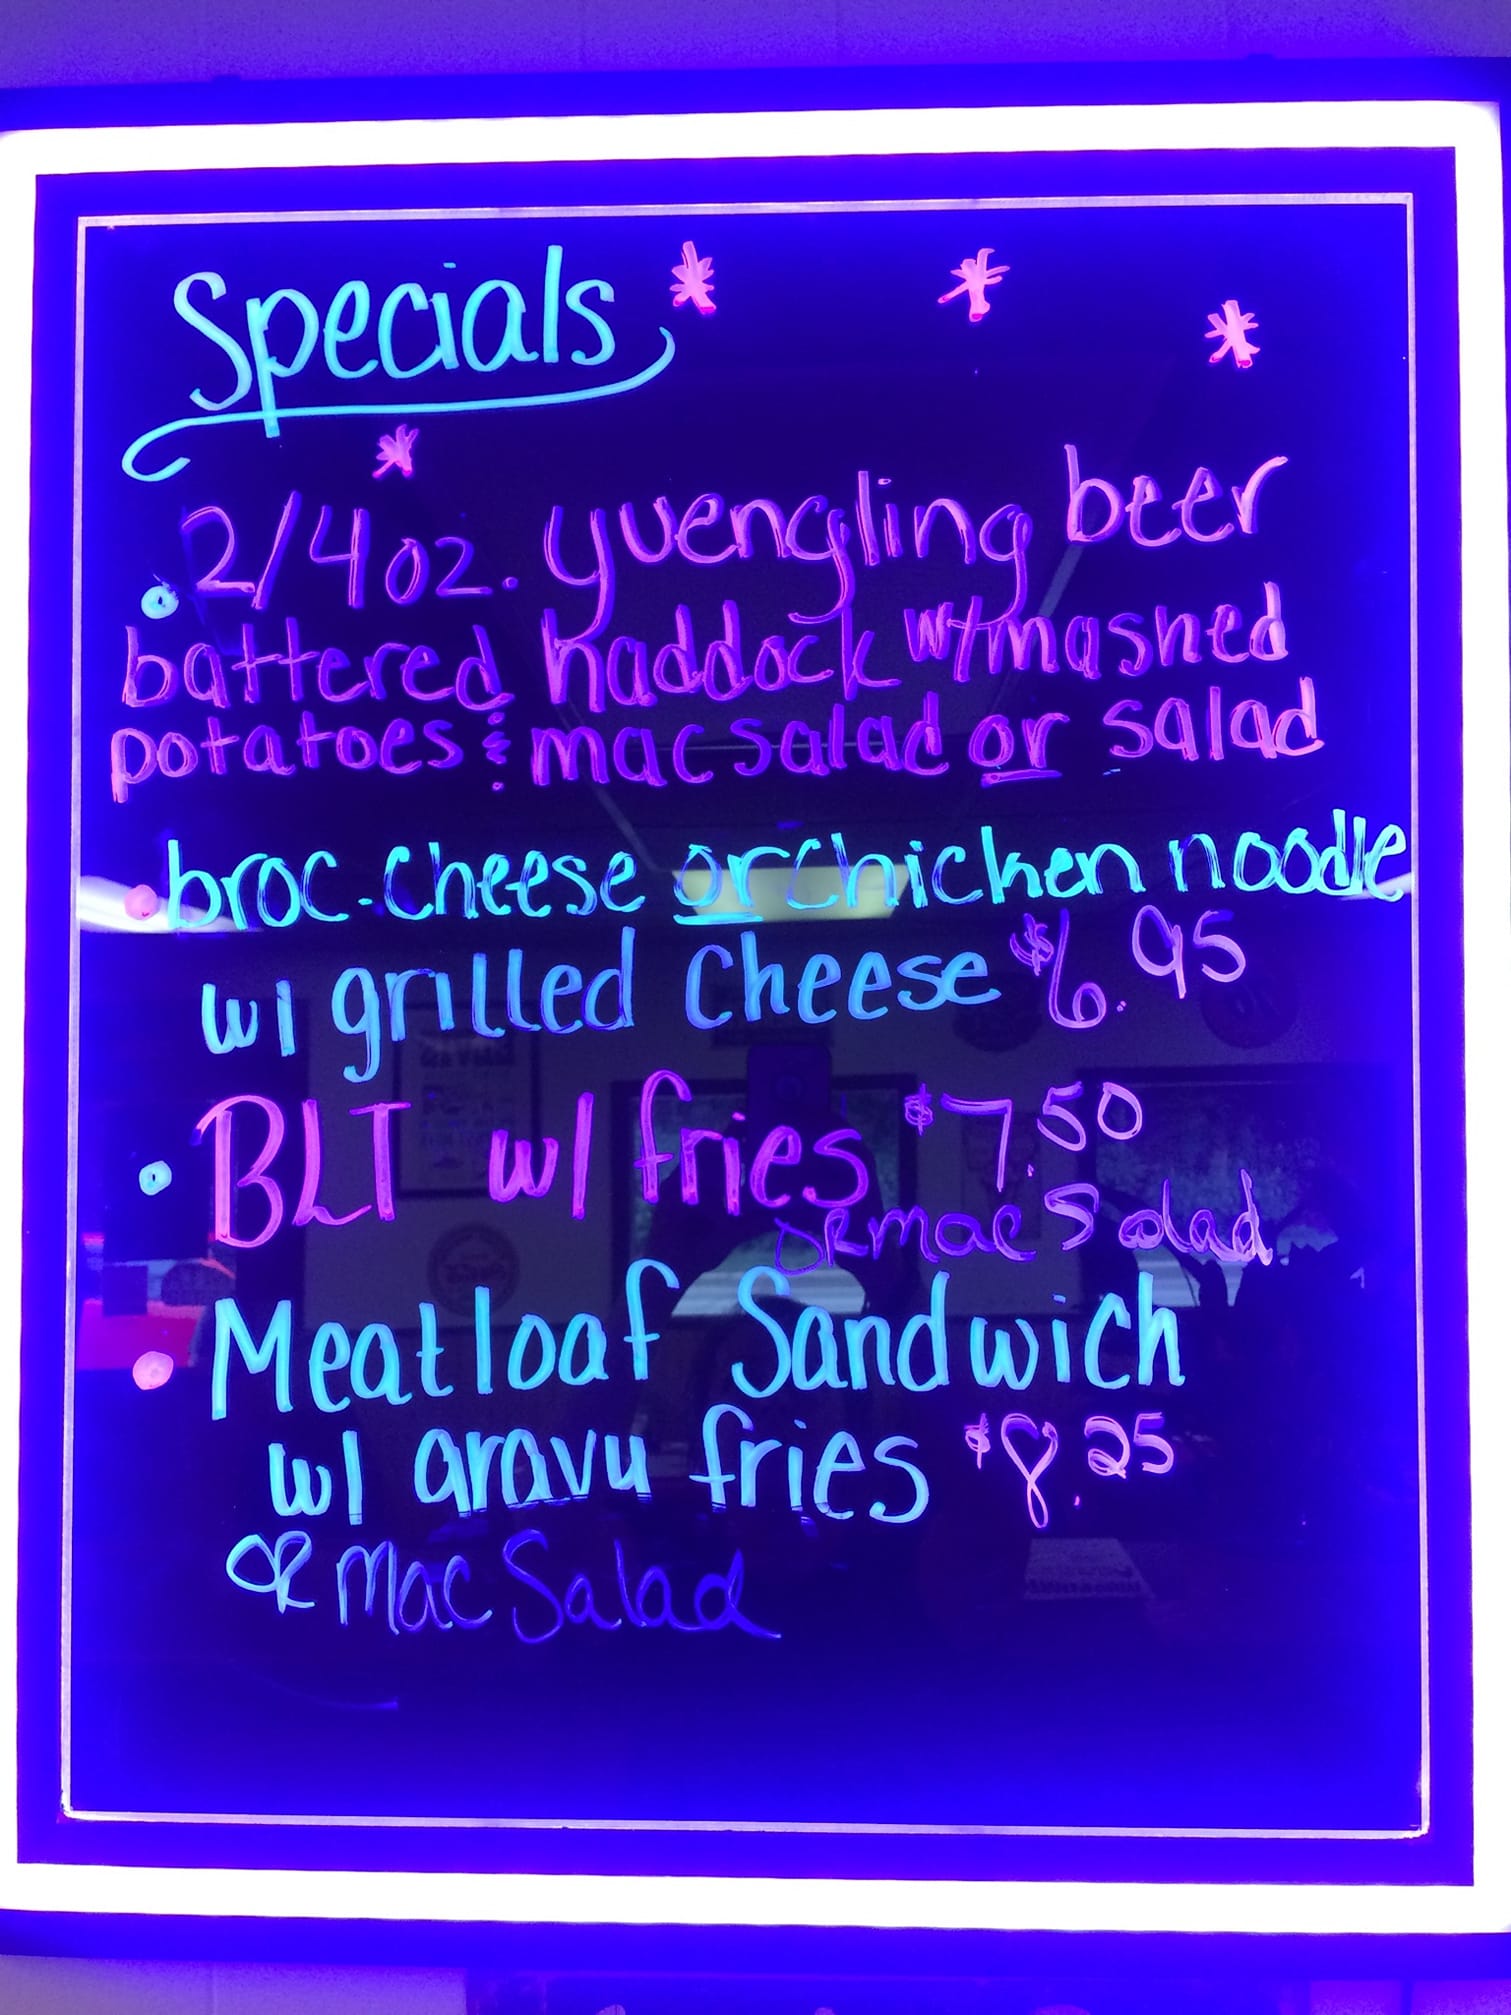 Specials
2/4 oz. yuengling beer
battered haddock w/mashed
potatoes & mac salad or salad
broc. cheese or chicken noodle
w/ grilled cheese $6.95
BLT w/ fries $7.50
OR mac Salad
Meatloaf Sandwich
w/ gravy fries $8.25
OR Mac Salad